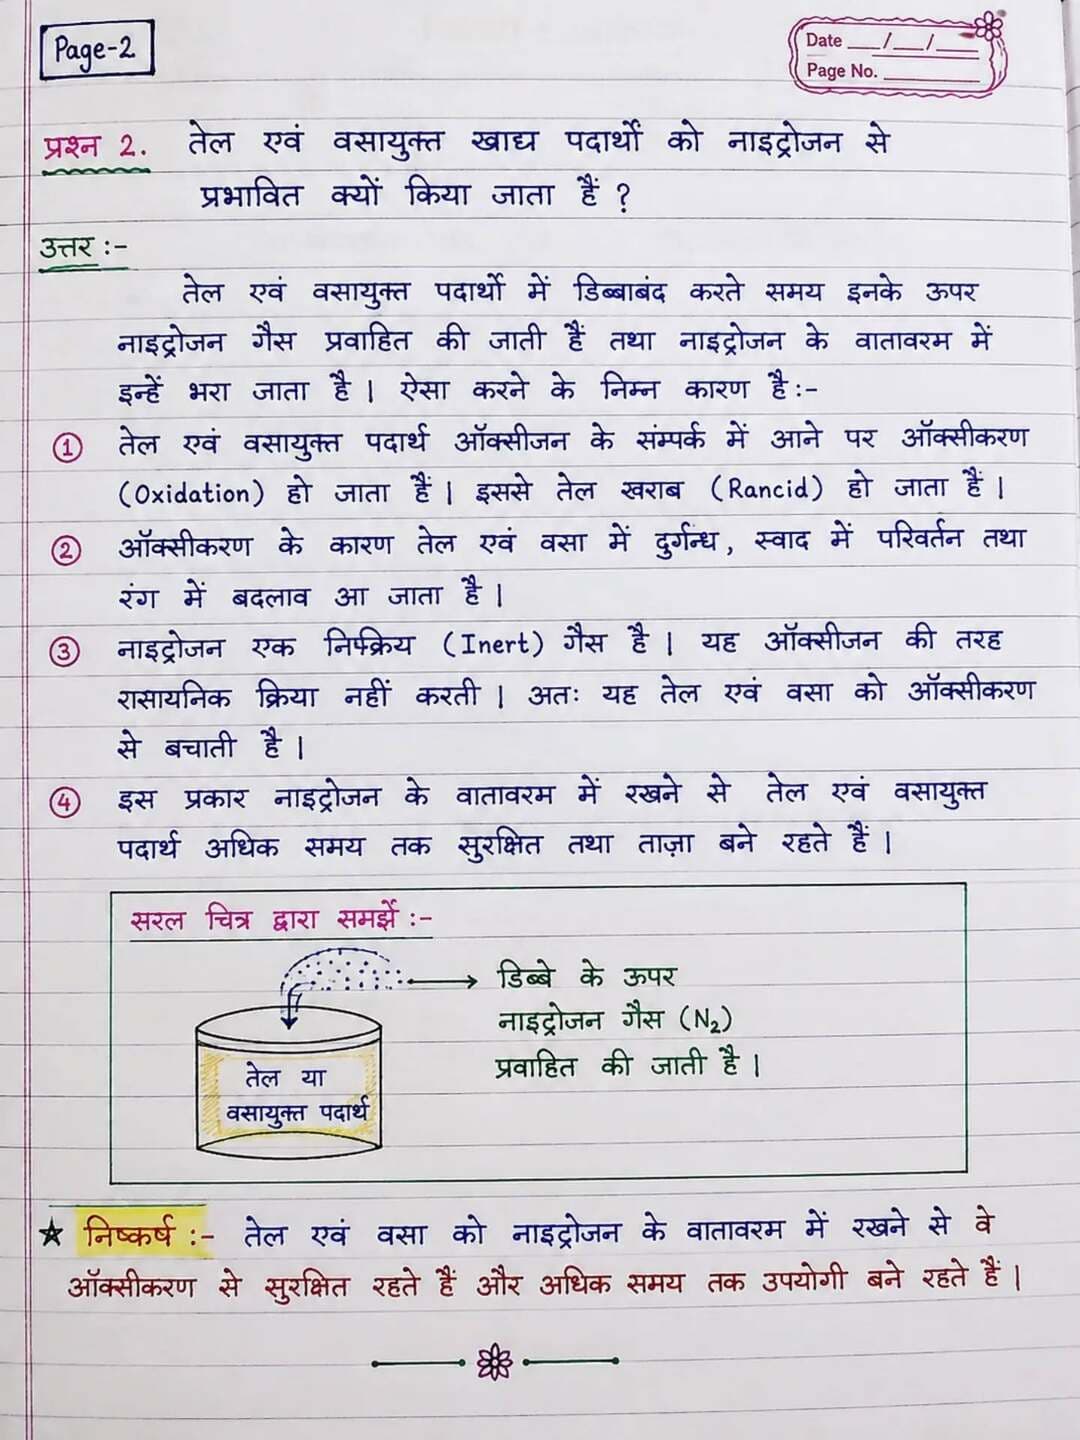 Page-2
Date ___/___/___
Page No. ________
प्रश्न 2. तेल एवं वसायुक्त खाद्य पदार्थों को नाइट्रोजन से
प्रभावित क्यों किया जाता हैं ?
उत्तर :-
तेल एवं वसायुक्त पदार्थो में डिब्बाबंद करते समय इनके ऊपर
नाइट्रोजन गैस प्रवाहित की जाती हैं तथा नाइट्रोजन के वातावरम में
इन्हें भरा जाता है । ऐसा करने के निम्न कारण है :-
① तेल एवं वसायुक्त पदार्थ ऑक्सीजन के संम्पर्क में आने पर ऑक्सीकरण
(Oxidation) हो जाता हैं । इससे तेल खराब (Rancid) हो जाता हैं ।
② ऑक्सीकरण के कारण तेल एवं वसा में दुर्गन्ध, स्वाद में परिवर्तन तथा
रंग में बदलाव आ जाता है ।
③ नाइट्रोजन एक निष्क्रिय (Inert) गैस है । यह ऑक्सीजन की तरह
रासायनिक क्रिया नहीं करती । अतः यह तेल एवं वसा को ऑक्सीकरण
से बचाती है ।
④ इस प्रकार नाइट्रोजन के वातावरम में रखने से तेल एवं वसायुक्त
पदार्थ अधिक समय तक सुरक्षित तथा ताज़ा बने रहते हैं ।
सरल चित्र द्वारा समर्झे :-
डिब्बे के ऊपर
नाइट्रोजन गैस (N₂)
प्रवाहित की जाती है ।
तेल या
वसायुक्त पदार्थ
★ निष्कर्ष :- तेल एवं वसा को नाइट्रोजन के वातावरम में रखने से वे
ऑक्सीकरण से सुरक्षित रहते हैं और अधिक समय तक उपयोगी बने रहते हैं ।